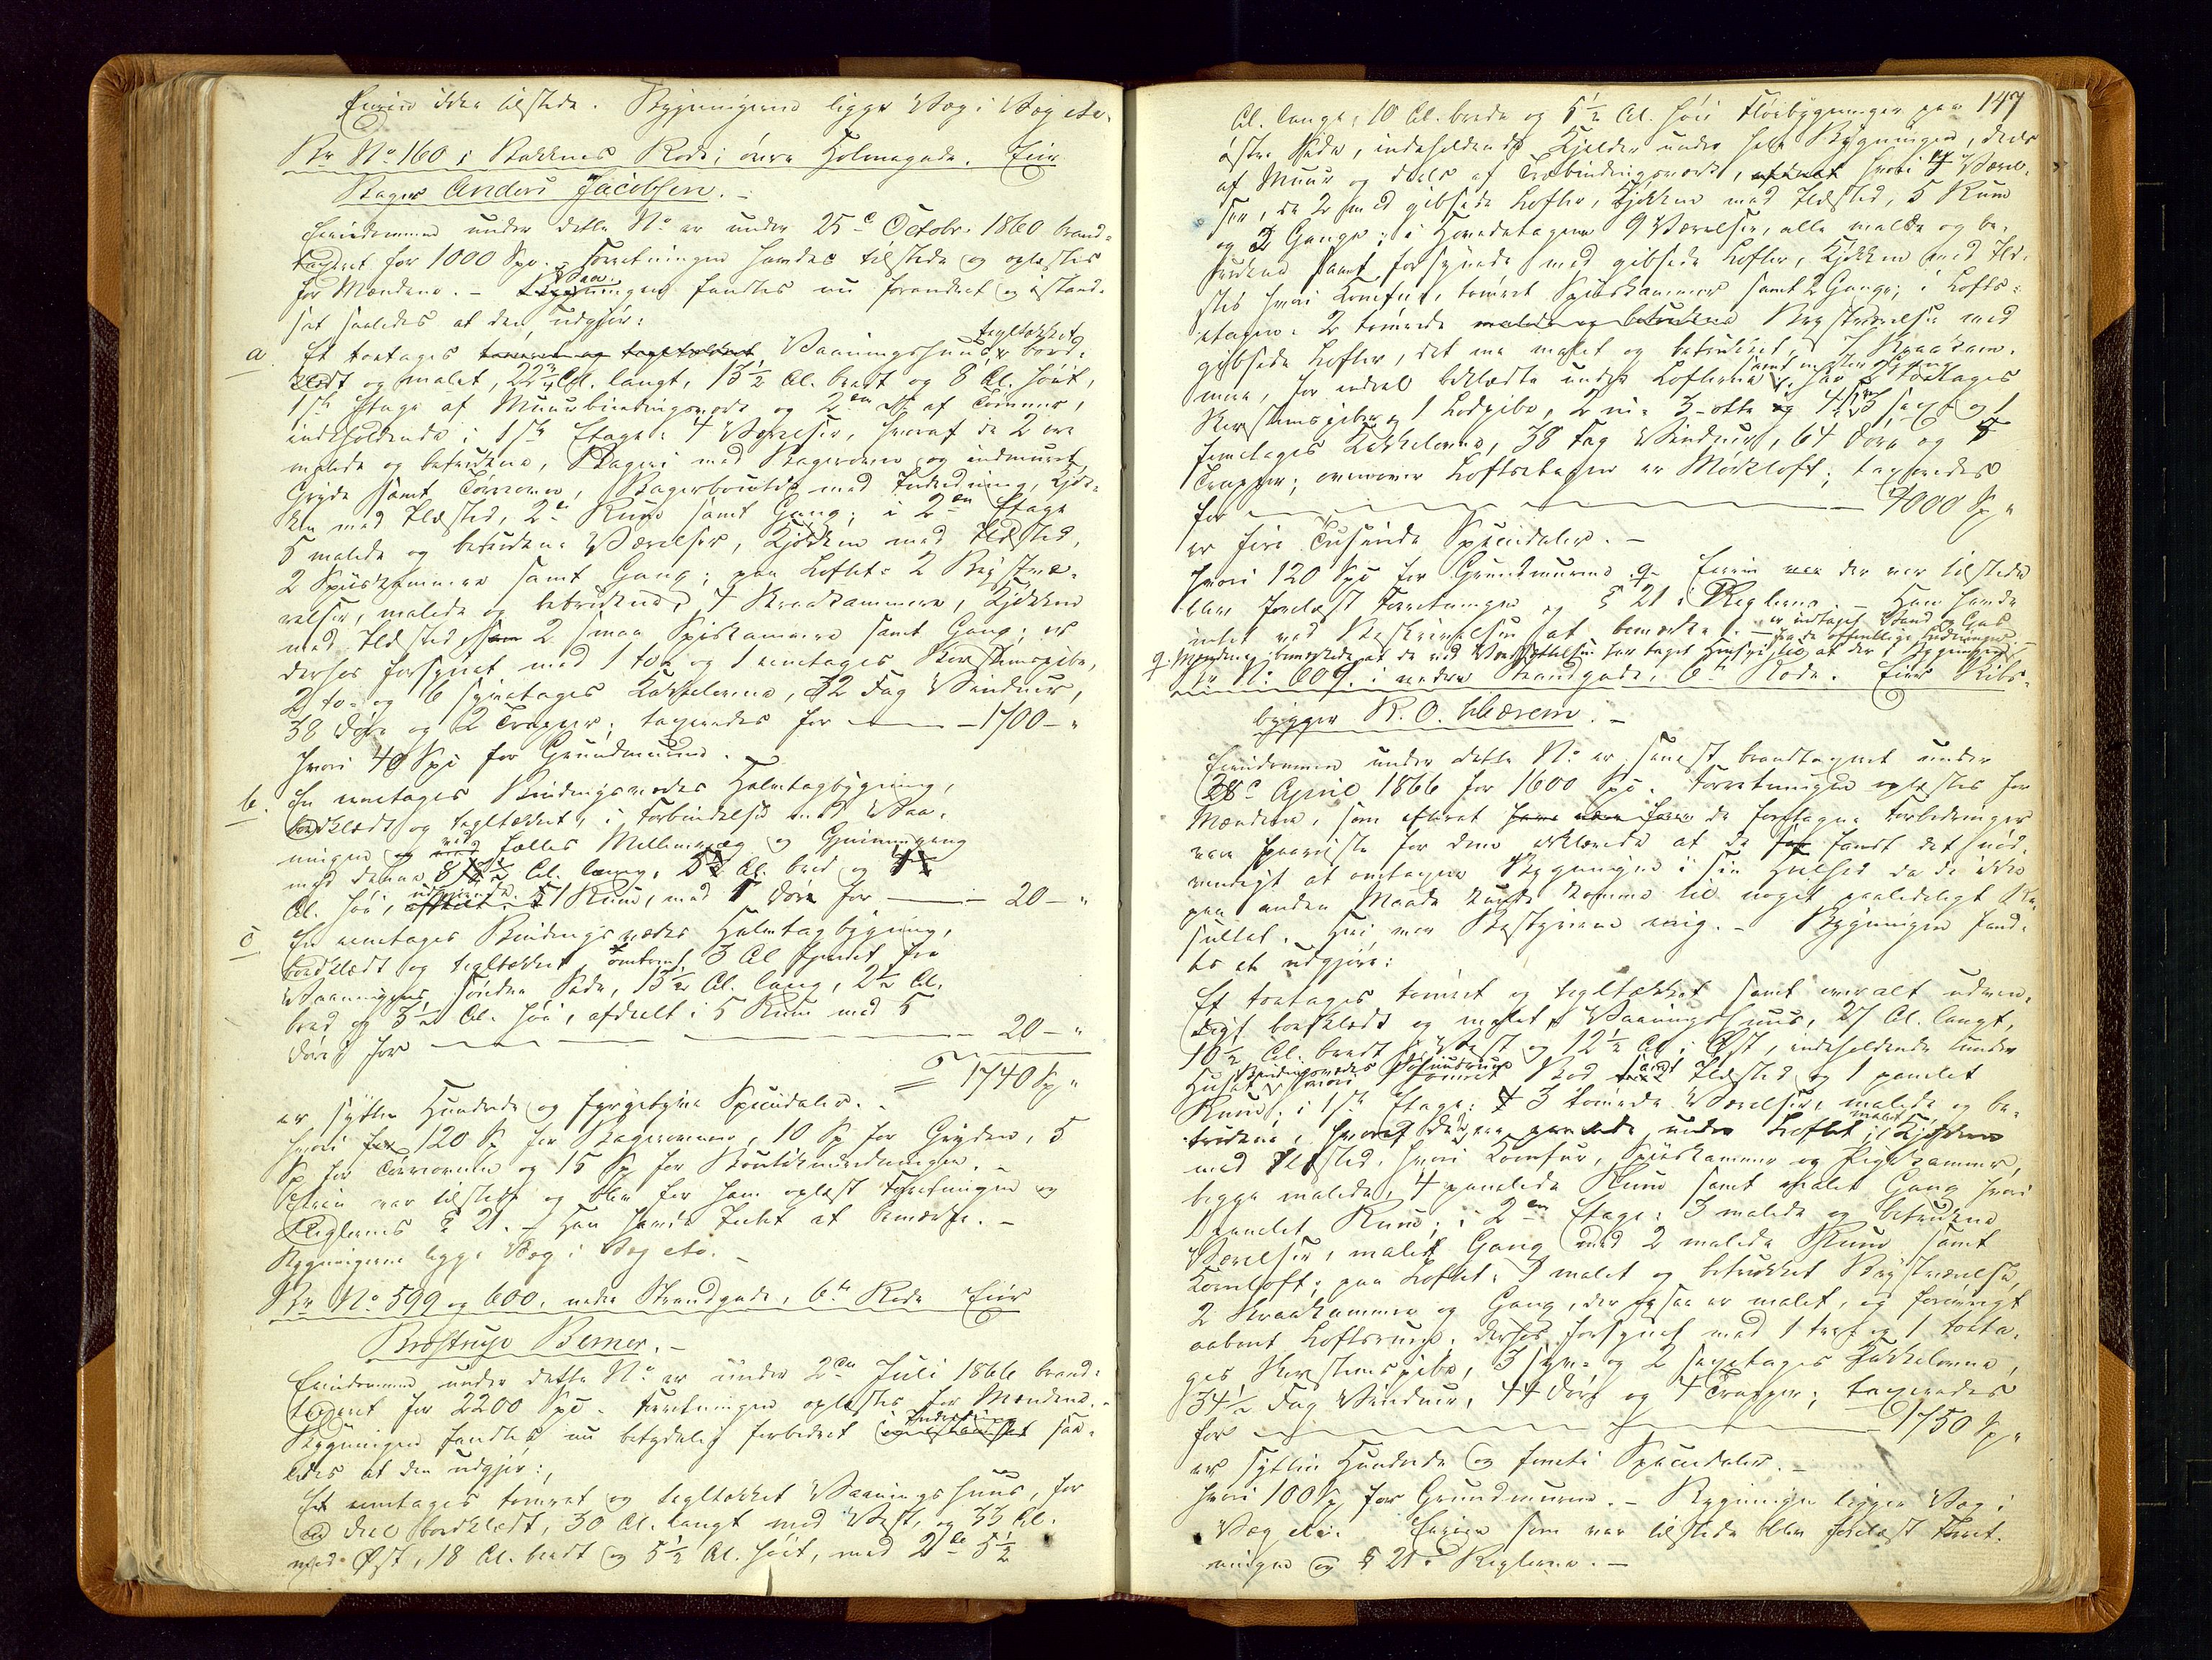 Eieren ikke tilstede. Bygningerne ligge Væg i Væg etc.
Br No 160 i Bakkens Rode i øvre Holmegade. Eier
Bager Anders Jacobsen.
Eiendommen under dette No er under 25de Octobr. 1860 brand-
taxeret for 1000 Spd. Forretningen havdes tilstede og oplæstes
for Mændene. – Bygningen fandtes nu forandret og istand-
sat saaledes at den udgjør:
a Et toetages tømret og tegltækket Vaaningshuus, tegltækket bord-
klædt og malet, 22¾ Al. langt, 13½ Al. bredt og 8 Al. høit,
1ste Etage af Muurbindingsværk og 2den do af Tømmer,
indeholdende i 1ste Etage: 4 Værelser, hvoraf de 2 ere
malede og betrukne, Bageri med Bagerovn og indmuret
Gryde samt Tørreovn, Bagerboutik med Indredning, Kjøk-
ken med Ildsted, 2de Rum samt Gang; i 2den Etage
5 malede og betrukne Værelser, Kjøkken med Ildsted,
2 Spiiskammere samt Gang; paa Loftet: 2 Kvistvæ-
relser, malede og betrukne, 7 Kraakammere, Kjøkken
med Ildsted, 2 smaa Spiskamere samt Gang; er
derhos forsynet med 1 to- og 1 eenetages Skorsteenspibe,
2 to- og 6 fleretages Kakkelovne, 32 Fag Vinduer,
38 Døre og 2 Trapper; taxeredes for — 1700 – "
hvori 40 Spd for Grundmurene.
b. En eenetages Bindingsværkes Halvtagbygning,
bordklædt og tegltækket, i Forbindelse med Vaa-
ningen ved fælles Mellemvæg og Gjennemgang
med denne, 8½ Al. lang, 5½ Al. bred og
Al. høi, udgjørende 1 Rum, med 1 Dør for — 20 – "
c En eenetages Bindingsværkes Halvtagbygning,
bordklædt og tegltækket, omtrent 3 Al fjernet fra
Vaaningens søndre Side, 13½ Al. lang, 2½ Al.
bred og 3½ Al. høi, afdeelt i 5 Rum med 5
Døre for — 20 – "
= 1740 Sp "
er sytten Hundrede og fyrgetyve Speciedaler.
hvori for 120 Sp for Bagerovnen, 10 Sp for Gryden, 5
Sp for Tørreovnen og 15 Sp for Boutikindredningen. –
Eieren var tilstede og blev for ham oplæst Forretningen og
Reglernes § 21. – Han havde Intet at bemærke. –
Bygningerne ligge Væg i Væg etc. –
Br No 599 og 600, nedre Strandgade, 6te Rode Eier
Brostrup Berner. –
Eiendommen under dette No er under 2den Juli 1866 brand-
taxeret for 2200 Spd. Forretningen oplæstes for Mændene. –
Bygningen fandtes nu betydelig forbedret i Indredning saa-
ledes at den udgjør:
Et eenetages tømret og tegltækket Vaaningshuus, for
en Deel bordklædt, 30 Al. langt mod Vest, og 33 Al.
mod Øst, 18 Al. bredt og 5½ Al. høit, med 2de 5½
147
Al. lange, 10 Al. brede og 5½ Al. høie Fløibygninger paa
østre Side, indeholdende Kjelder under hele Bygningen, deels
af Muur og deels af Træbindingsværk, hvori 4 Værel-
ser, de 2 med gibsede Lofter, Kjøkken med Ildsted, 5 Rum
og 2 Gange; i Hovedetagen 9 Værelser, alle malede og be-
trukne samt forsynede med gibsede Lofter, Kjøkken med Ild-
sted hvori Komfur, tømret Spiiskammer samt 2 Gange; i Lofts-
etagen: 2 tømrede malede og betrukne Kvistværelser med
gibsede Lofter, det ene malet og betrukket, 7 Kraakam-
mere, for endeel beklædte under Lofterne samt malet Gang; har 3 toetages
Skorsteenspiber og 1 Lodpibe, 2 ni- 3 otte og 4 syv- sext og 1
femetages Kakkelovne, 38 Fag Vinduer, 64 Døre og 5
Trapper; ovenover Loftsetagen er Mørkloft; taxeredes
for — 4000 Sp "
er fire Tusinde Speciedaler. –
hvori 120 Spd for Grundmurene. q. Eieren der var tilstede
blev forelæst Forretningen og § 21 i Reglerne. – Han havde
intet ved Beskrivelsen at bemærke. – er indlagt Vand og Gas
q. Mændene bemærkede at de ved Værdsættelsen har taget Hensyn til at der i Bygningen fra de offentlige Ledninger. –
Br No 609. i nedre Strandgade, 6te Rode. Eier Skibs-
bygger K. O. Wærem. –
Eiendommen under dette No er senest brandtaxeret under
28de April 1866 for 1600 Spd. Forretningen oplæstes for
Mændene, som efterat de foretagne Forbedringer
vare paaviste for dem erklærede at de fandt det nød-
vendigt at omtaxere Bygningen i sin Heelhed da de ikke
paa anden Maade kunde komme til noget paalideligt Re-
sultat. Heri var Bestyreren enig. – Bygningen fand-
tes at udgjøre:
Et toetages tømret og tegltækket samt overalt udven-
digt bordklædt og malet Vaaningshuus, 27 Al. langt,
10½ Al. bredt i Vest og 12½ Al. i Øst, indeholdende under
Huset Bindingsværkes hvori tømret Bod samt Ildsted og 1 panelet
Rum; i 1ste Etage: 3 tømrede Værelser, malede og be-
trukne, hvoraf de ere panelede under Loftet, malet Kjøkken
med Ildsted, hvori Komfur, Spiiskammer og Pigekammer,
begge malede, 4 panelede Rum samt malet Gang hvori
1 panelet Rum; i 2den Etage: 3 malede og betrukne
Værelser, malet Gang med 2 malede Rum samt
Kornloft; paa Loftet: 1 malet og betrukket Kvistværelse,
2 Kraakammere og Gang, der ogsaa er malet, og forøvrigt
aabent Loftsrum. Derhos forsynet med 1 tre- og 1 toeta-
ges Skorsteenspibe, 3 syv- og 2 sexetages Kakkelovne,
34½ Fag Vinduer, 44 Døre og 4 Trapper; taxeredes
for — 1750 Sp "
er sytten Hundrede og femti Speciedaler. –
hvori 100 Sp for Grundmurene. – Bygningen ligger Væg i
Væg etc. Eieren som var tilstede blev forelæst Forret-
ningen og § 21 i Reglerne. –